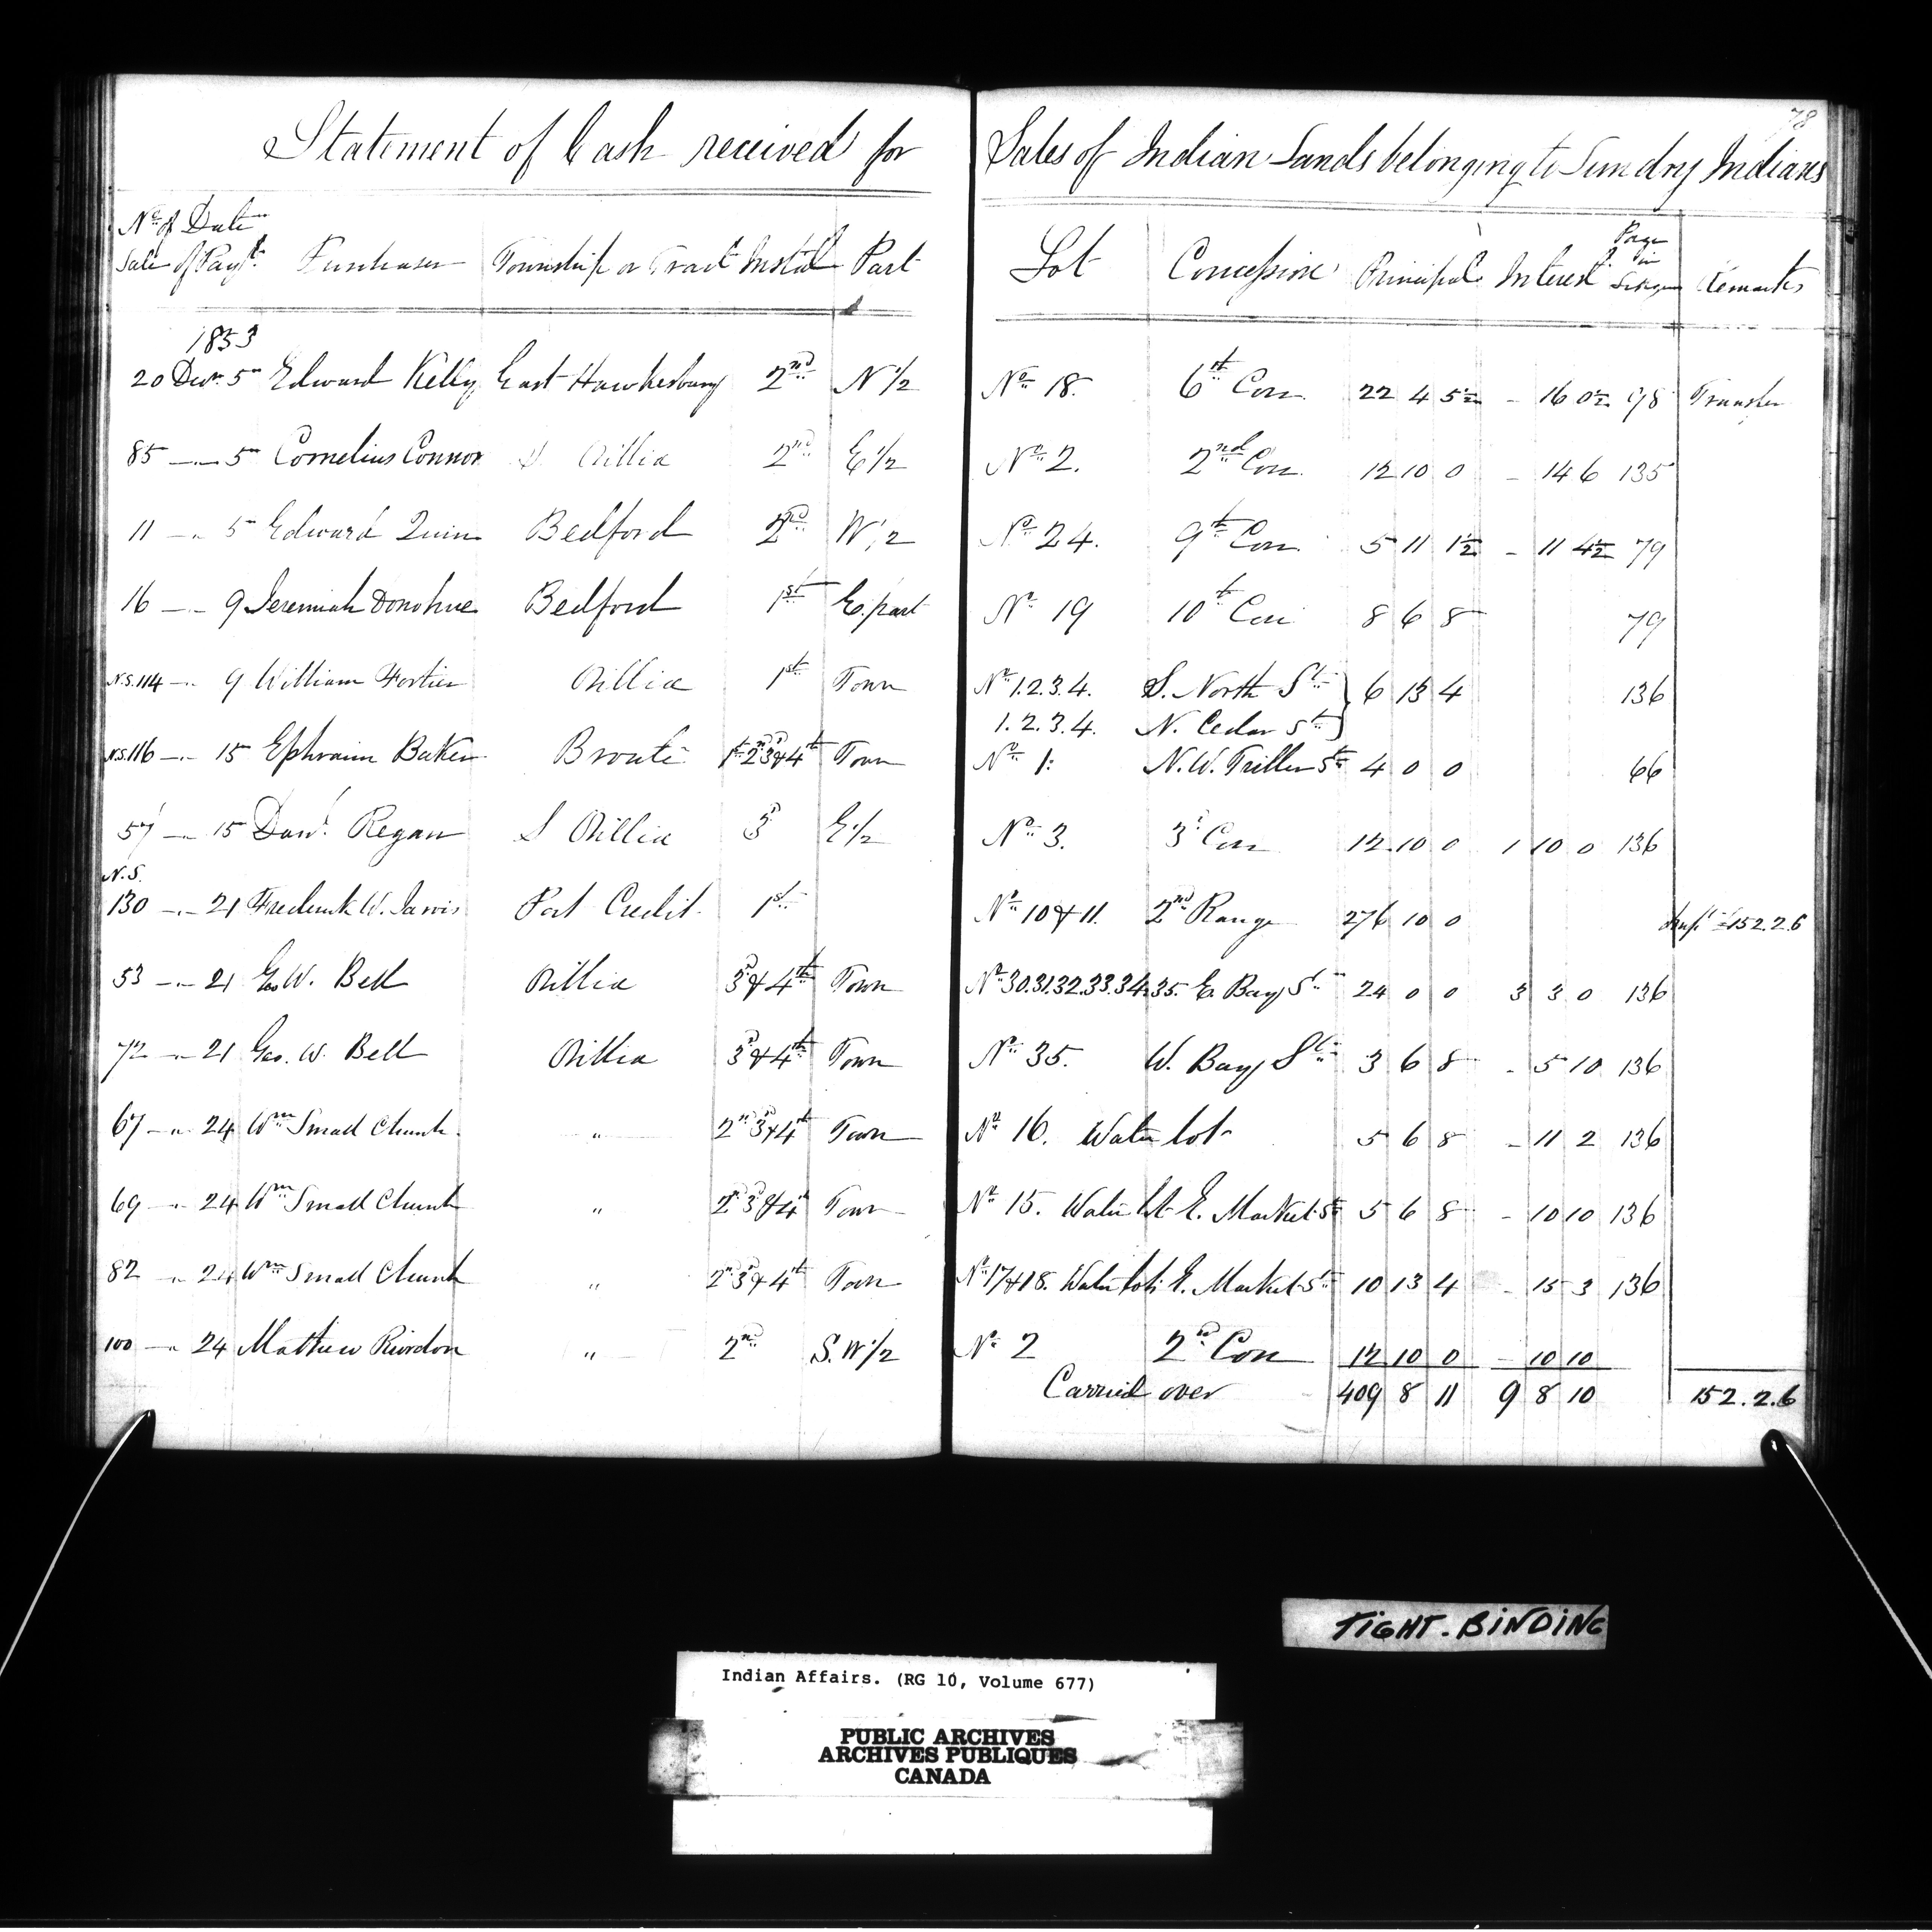 78
Statement of Cash received for Sales of Indian Lands belonging to Sundry Indians
No. of Sale Date of Payt. Purchaser Township or Tract Instal. Part Lot Concession Principal Interest Page in Ledger Remarks
1853
20 Decr. 5 Edward Kelly East Hawkesbury 2nd N 1/2 No. 18. 6th Con 22 4 5 1/2 - 16 0 1/2 98 Transfer
85 -"- 5 Cornelius Connor S Orillia 2nd E 1/2 No. 2. 2nd Con. 12 10 0 - 14 6 135
11 -"- 5 Edward Quinn Bedford 2nd W 1/2 No. 24. 9th Con 5 11 1 1/2 - 11 4 1/2 79
16 -"- 9 Jeremiah Donohue Bedford 1st E. part No. 19 10th Con 8 6 8 79
N.S. 114 -"- 9 William Fortier Orillia 1st Town No. 1.2.3.4. S. North St. } 6 13 4 136
1.2.3.4. N. Cedar St. }
N.S. 116 -"- 15 Ephraim Baker Bronte 1st 2nd 3d & 4th Town No. 1. N.W. Triller St. 4 0 0 66
57 -"- 15 Danl. Regan S Orillia 3d E 1/2 No. 3. 3d Con 12 10 0 1 10 0 136
N.S.
130 -"- 21 Frederick W. Jarvis Port Credit 1st No. 10 & 11. 2nd Range 276 10 0 £152.2.6
53 -"- 21 Geo W. Bell Orillia 3d & 4th Town No. 30.31.32.33.34.35. E. Bay St. 24 0 0 3 3 0 136
72 -"- 21 Geo. W. Bell Orillia 3d & 4th Town No. 35. W. Bay St. 3 6 8 - 5 10 136
67 -"- 24 Wm Small Church " 2nd 3d & 4th Town No. 16. Water lot 5 6 8 - 11 2 136
69 -"- 24 Wm Small Church " 2nd 3d & 4th Town No. 15. Water lot E. Market St. 5 6 8 - 10 10 136
82 -"- 24 Wm Small Church " 2nd 3d & 4th Town No. 17 & 18. Water lots E. Market St. 10 13 4 - 15 3 136
100 -"- 24 Mathew Riordon " 2nd S.W 1/2 No. 2 2nd Con 12 10 0 - 10 10
Carried over 409 8 11 9 8 10 152.2.6
TIGHT-BINDING
Indian Affairs. (RG 10, Volume 677)
PUBLIC ARCHIVES
ARCHIVES PUBLIQUES
CANADA